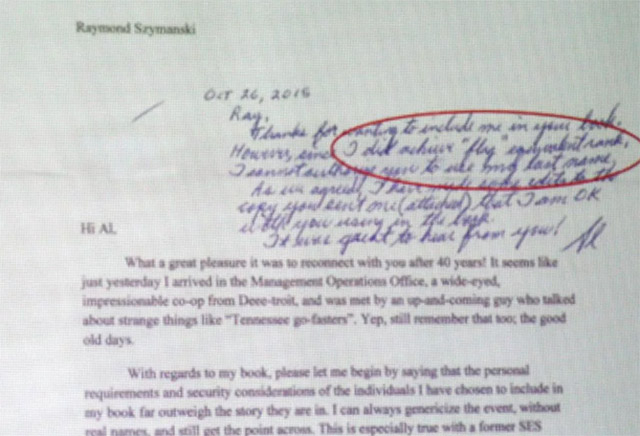 Raymond Szymanski
Oct 26, 2015
Ray,
Thanks for wanting to include me in your book.
However, since I did achieve "flag" equivalent rank,
I cannot authorize you to use my last name.
As we agreed, I have made some edits to the
copy you sent me (attached) that I am OK
with you using in the book.
It was great to hear from you! Al
Hi Al,
What a great pleasure it was to reconnect with you after 40 years! It seems like
just yesterday I arrived in the Management Operations Office, a wide-eyed,
impressionable co-op from Deee-troit, and was met by an up-and-coming guy who talked
about strange things like “Tennessee go-fasters”. Yep, still remember that too; the good
old days.
With regards to my book, please let me begin by saying that the personal
requirements and security considerations of the individuals I have chosen to include in
my book far outweigh the story they are in. I can always genericize the event, without
real names, and still get the point across. This is especially true with a former SES